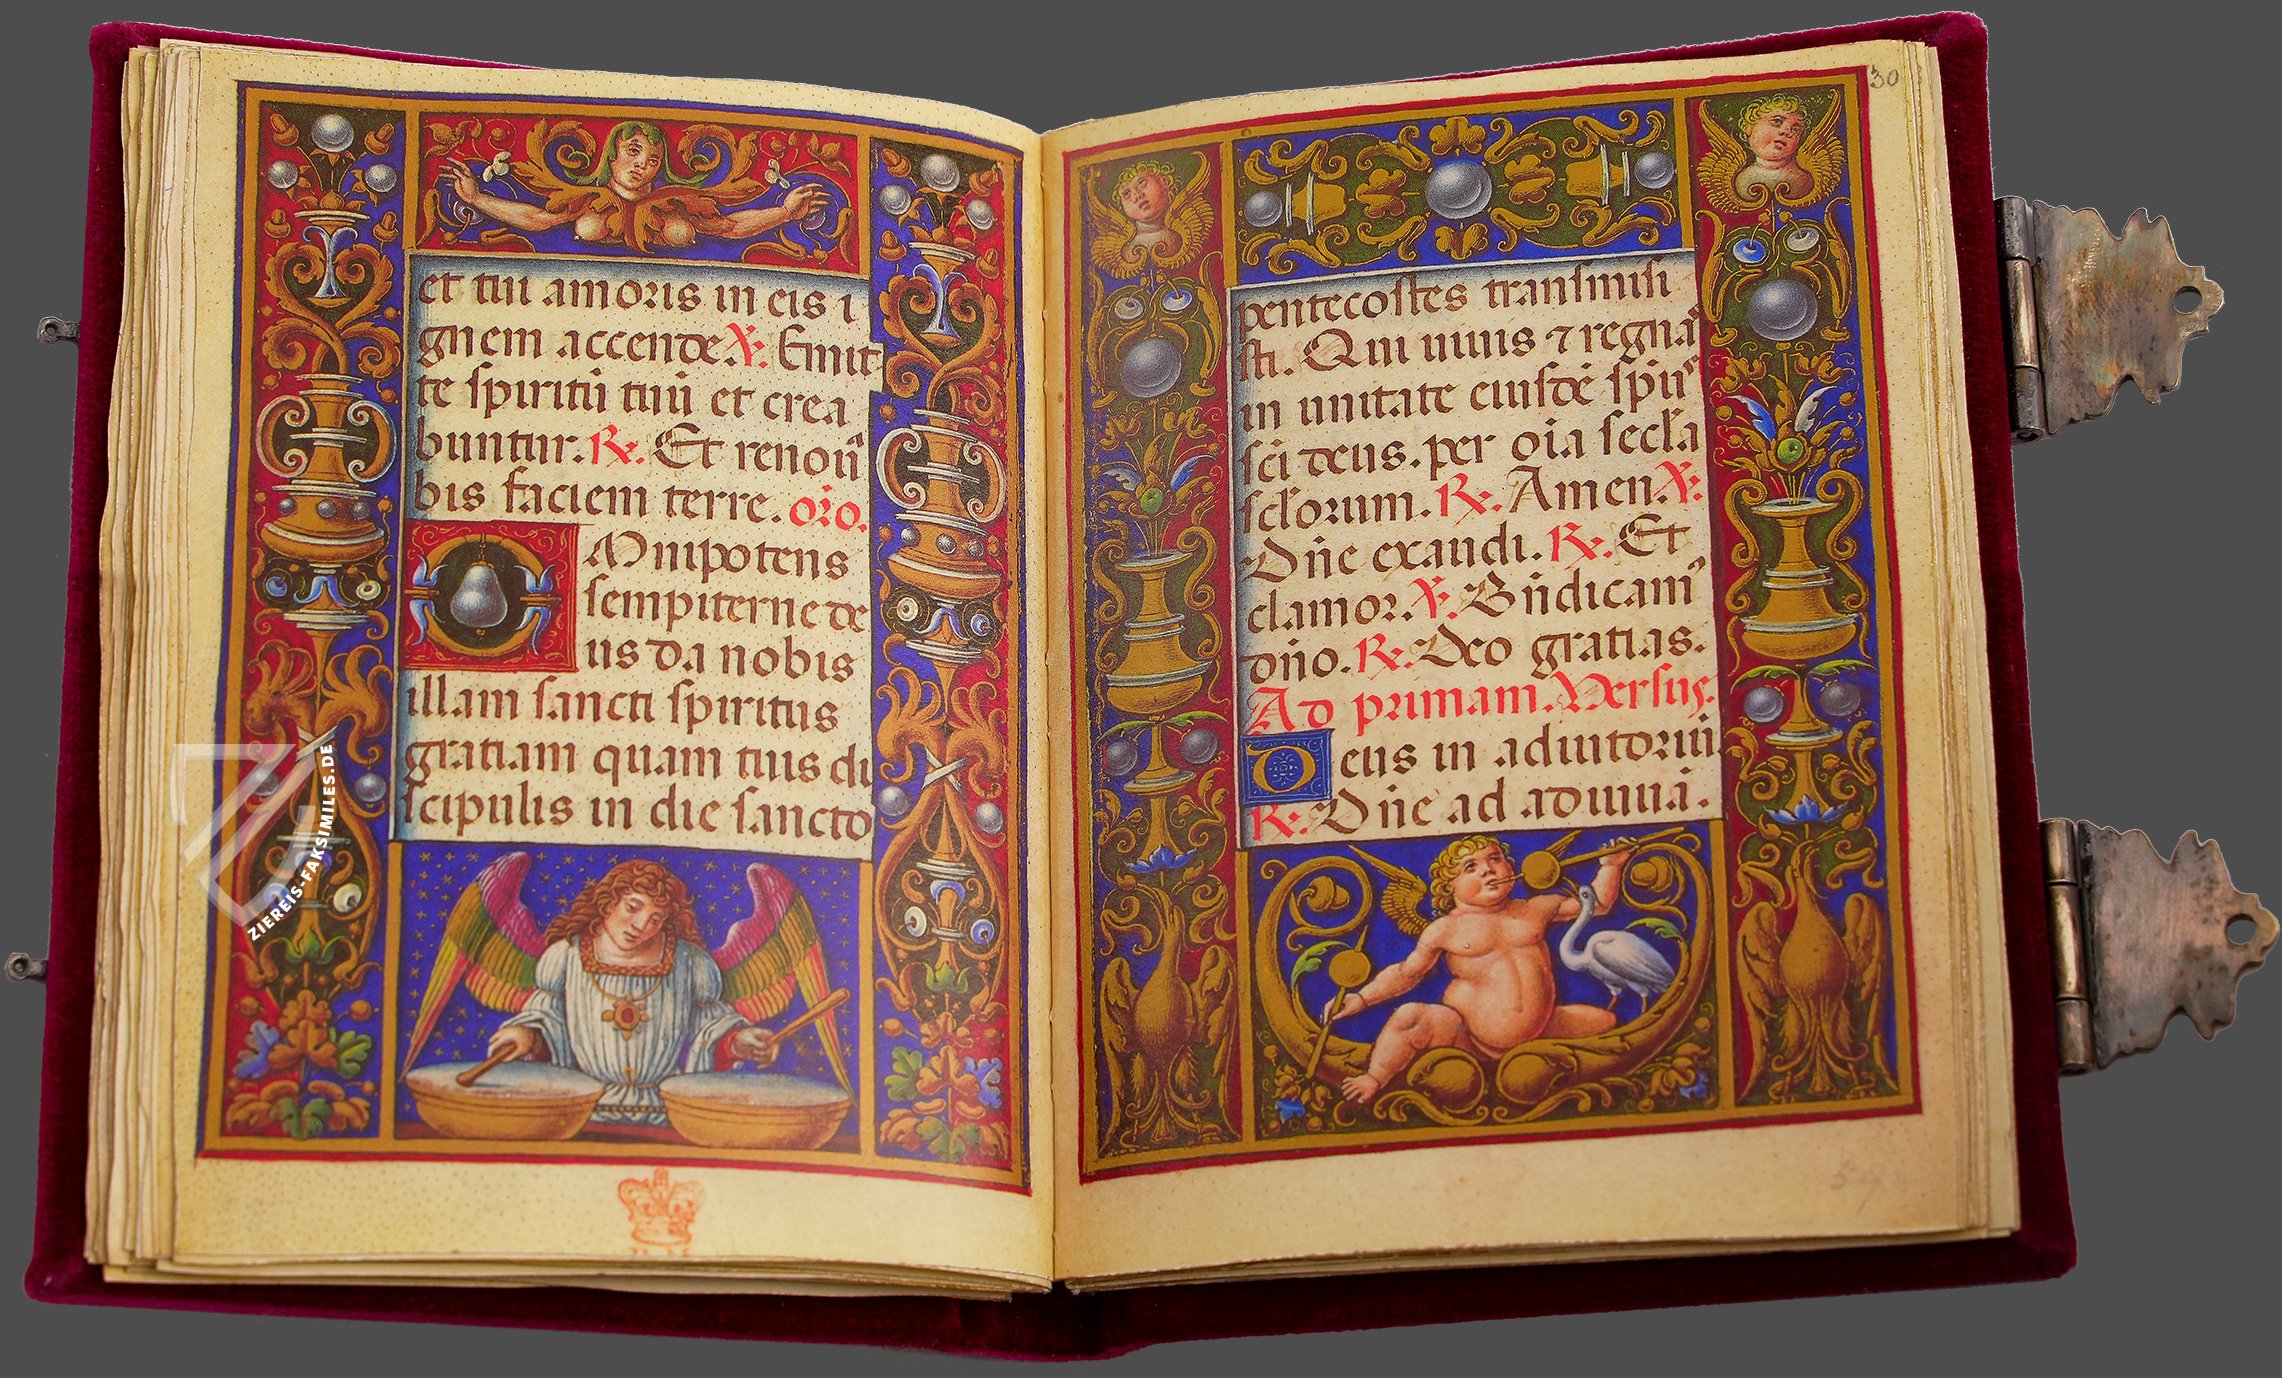 et tui amoris in eis i
gnem accende ℣. Emit
te spiritū tuū et crea
buntur. ℟. Et renoua
bis faciem terre. oro.
Omnipotens
sempiterne de
us da nobis
illam sancti spiritus
gratiam quam tuis di
scipulis in die sancto
30
pentecostes transmisi
sti. Qui uiuis ⁊ regnas
in unitate eiusdē spūs
sci deus. per oia secla
sclorum. ℟. Amen. ℣.
Dñe exaudi. ℟. Et
clamor. ℣. Bñdicamꝰ
dño. ℟. Deo gratias.
Ad primam. Versus.
Deus in adiutoriū.
℟. Dñe ad adiuuā.
ZIEREIS-FAKSIMILES.DE